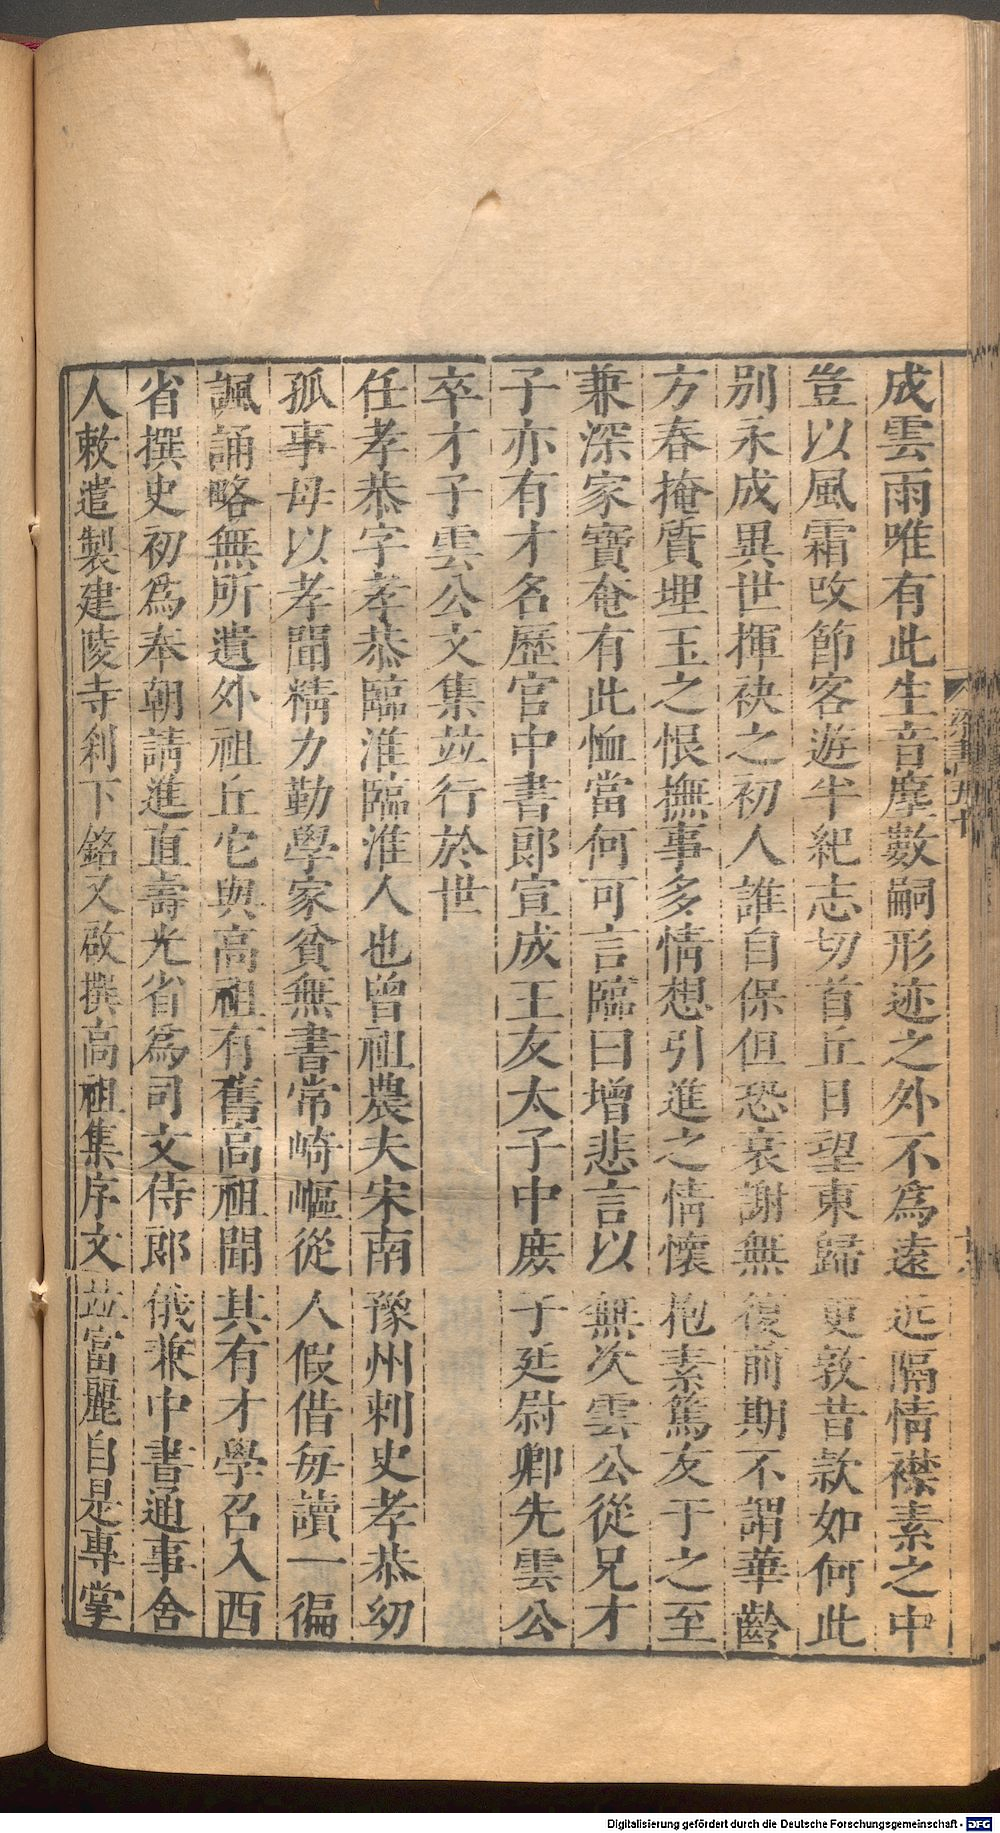 成雲雨唯有此生音塵數嗣形迹之外不爲遠近隔情襟素之中
豈以風霜改節客遊半紀志切首丘日望東歸更敦昔款如何此
别永成異世揮袂之初人誰自保但恐衰謝無復前期不謂華齡
方春掩質埋玉之恨撫事多情想引進之情懷抱素篤友于之至
兼深家寶奄有此恤當何可言臨曰增悲言以無次雲公從兄才
子亦有才名歷官中書郎宣成王友太子中庶子廷尉卿先雲公
卒才子雲公文集並行於世
任孝恭字孝恭臨淮臨淮人也曾祖農夫宋南豫州刺史孝恭幼
孤事母以孝聞精力勤學家貧無書常崎嶇從人假借每讀一徧
諷誦略無所遺外祖丘它與高祖有舊高祖聞其有才學召入西
省撰史初爲奉朝請進直壽光省爲司文侍郎俄兼中書通事舍
人敕遣製建陵寺刹下銘又啟撰高祖集序文並富麗自是專掌
梁書五十
Digitalisierung gefördert durch die Deutsche Forschungsgemeinschaft - DFG